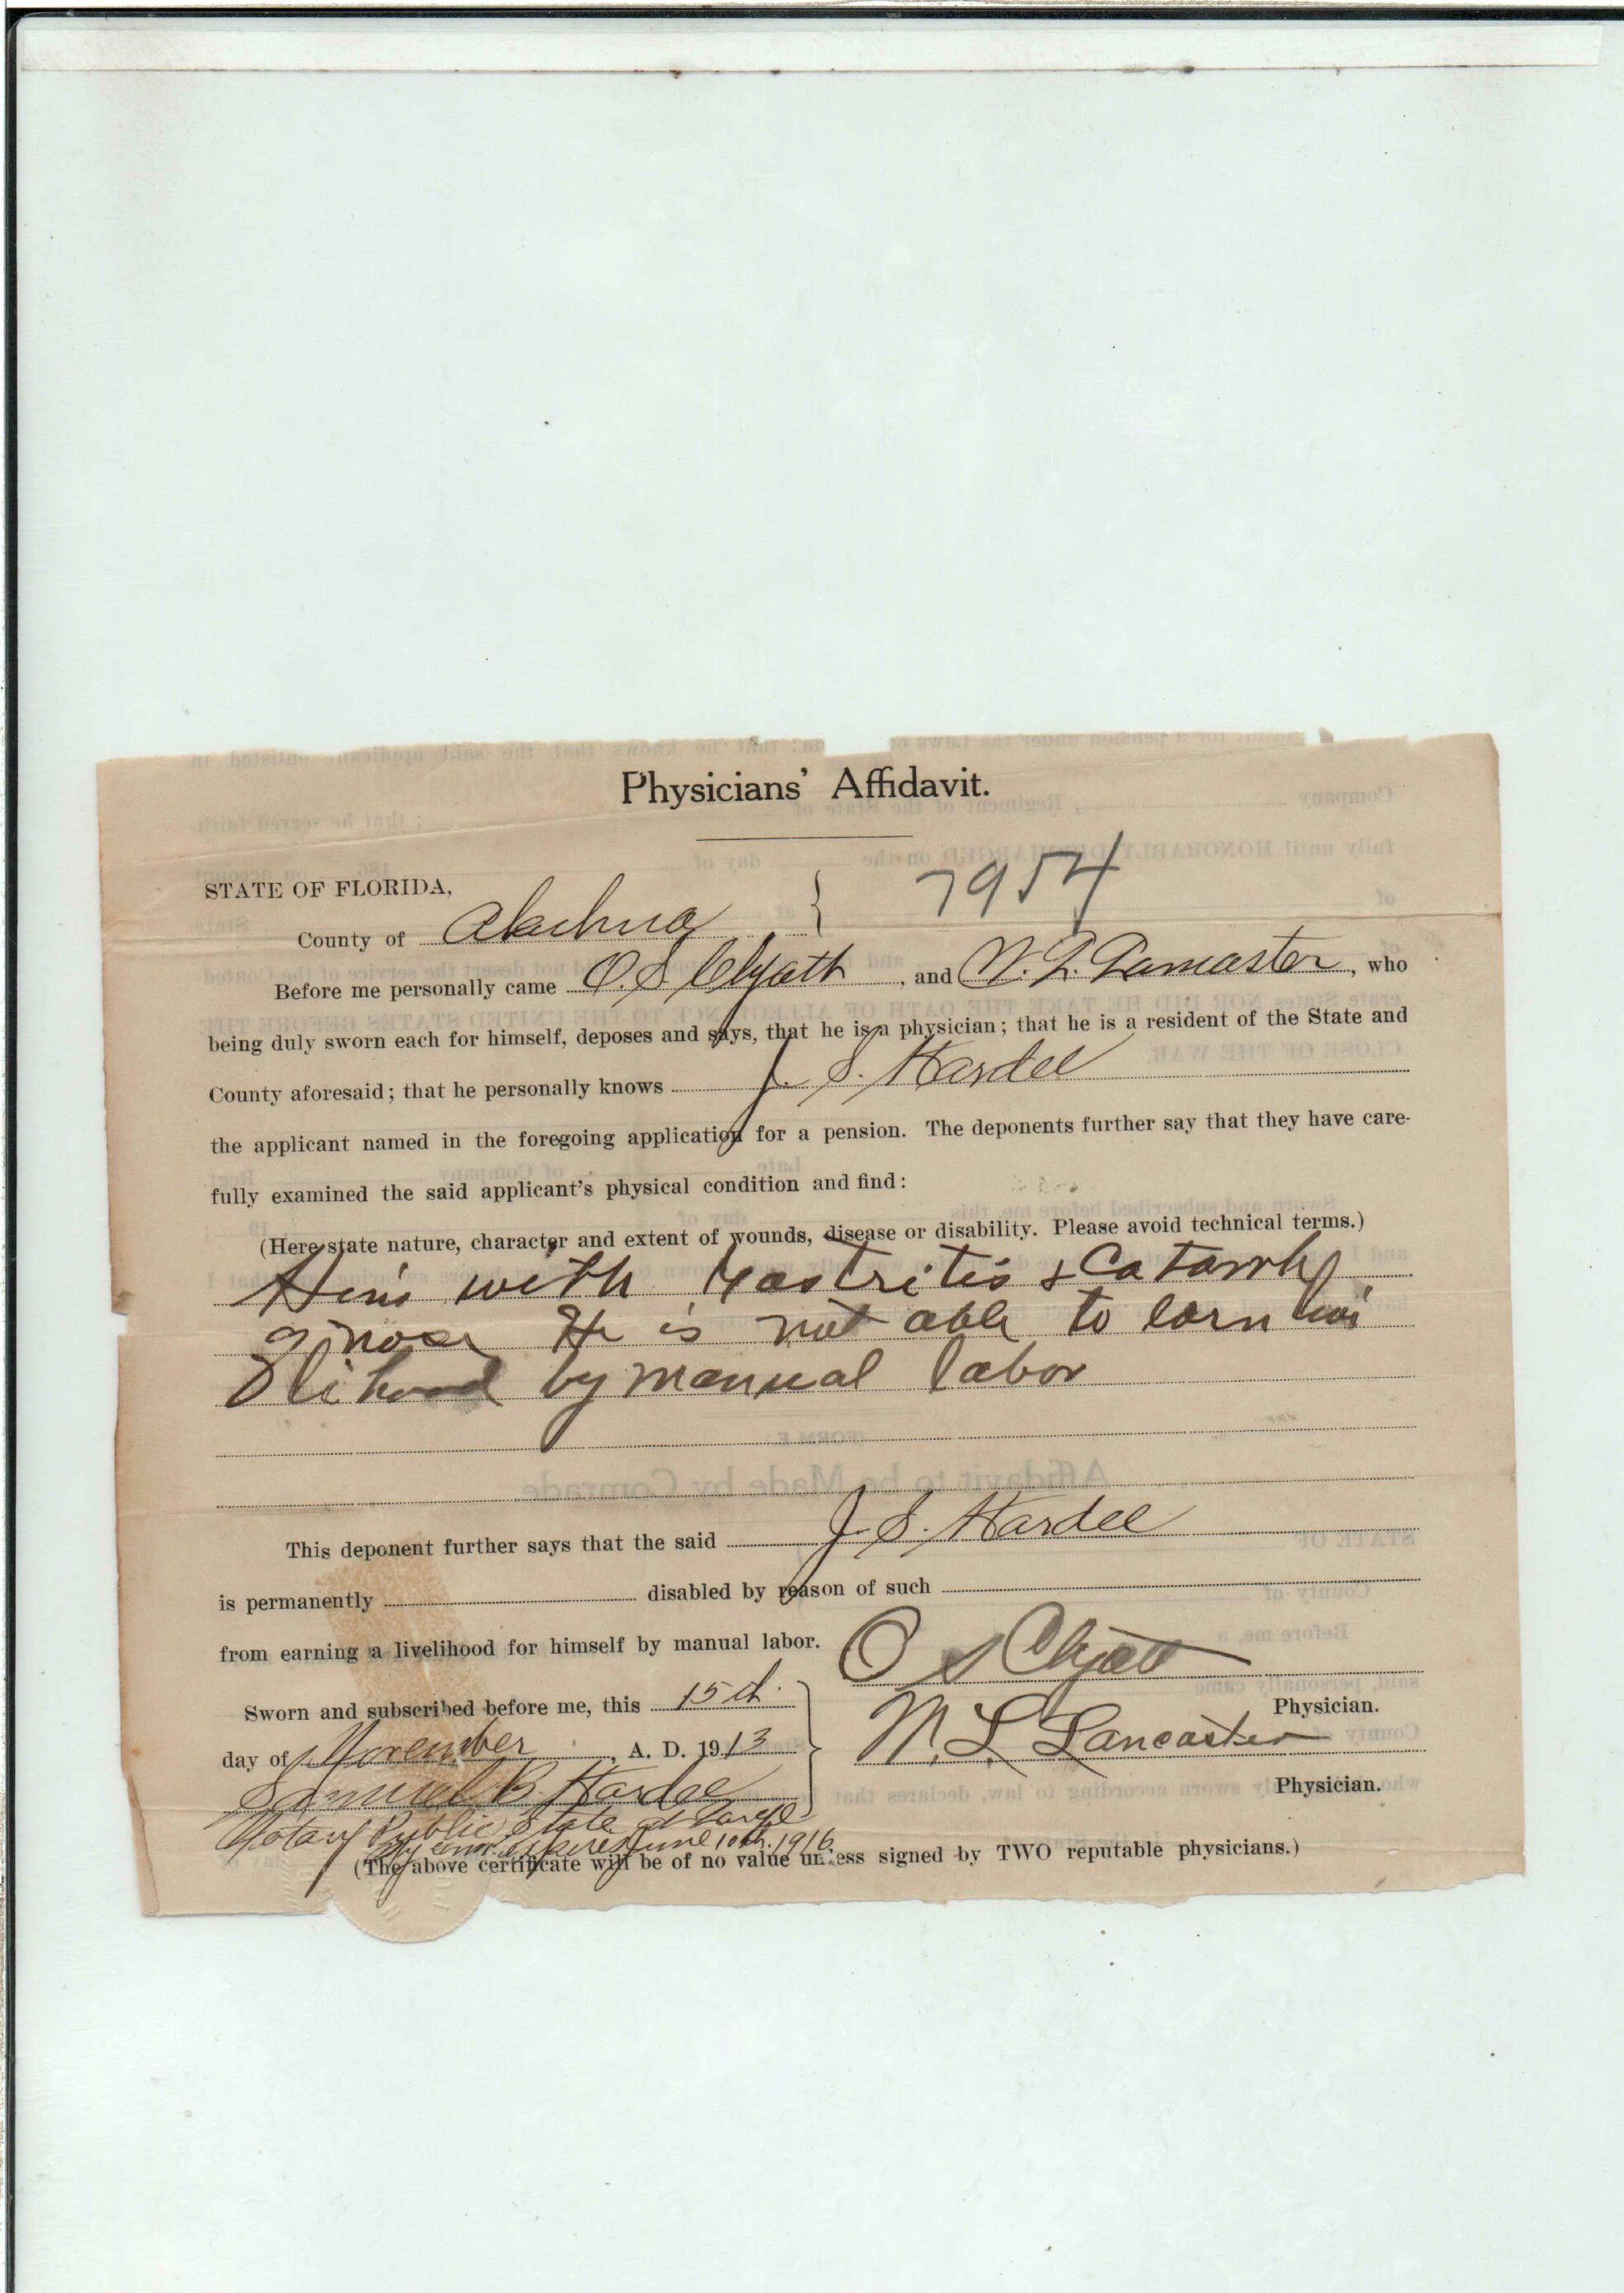 Physicians' Affidavit.
7954
STATE OF FLORIDA,
County of Alachua }
Before me personally came O. S. Clyatt, and N. L. Lancaster, who
being duly sworn each for himself, deposes and says, that he is a physician; that he is a resident of the State and
County aforesaid; that he personally knows J. S. Hardee
the applicant named in the foregoing application for a pension. The deponents further say that they have care-
fully examined the said applicant's physical condition and find:
(Here state nature, character and extent of wounds, disease or disability. Please avoid technical terms.)
with Gastritis & Catarrh
nose He is not able to earn
by manual labor
This deponent further says that the said J. S. Hardee
is permanently disabled by reason of such
from earning a livelihood for himself by manual labor.
O S Clyatt
Sworn and subscribed before me, this 15th
Physician.
day of November, A. D. 1913
N. L. Lancaster
Samuel B. Hardee
Physician.
Notary Public, State at Large
My com. expires June 10th. 1916
(The above certificate will be of no value unless signed by TWO reputable physicians.)